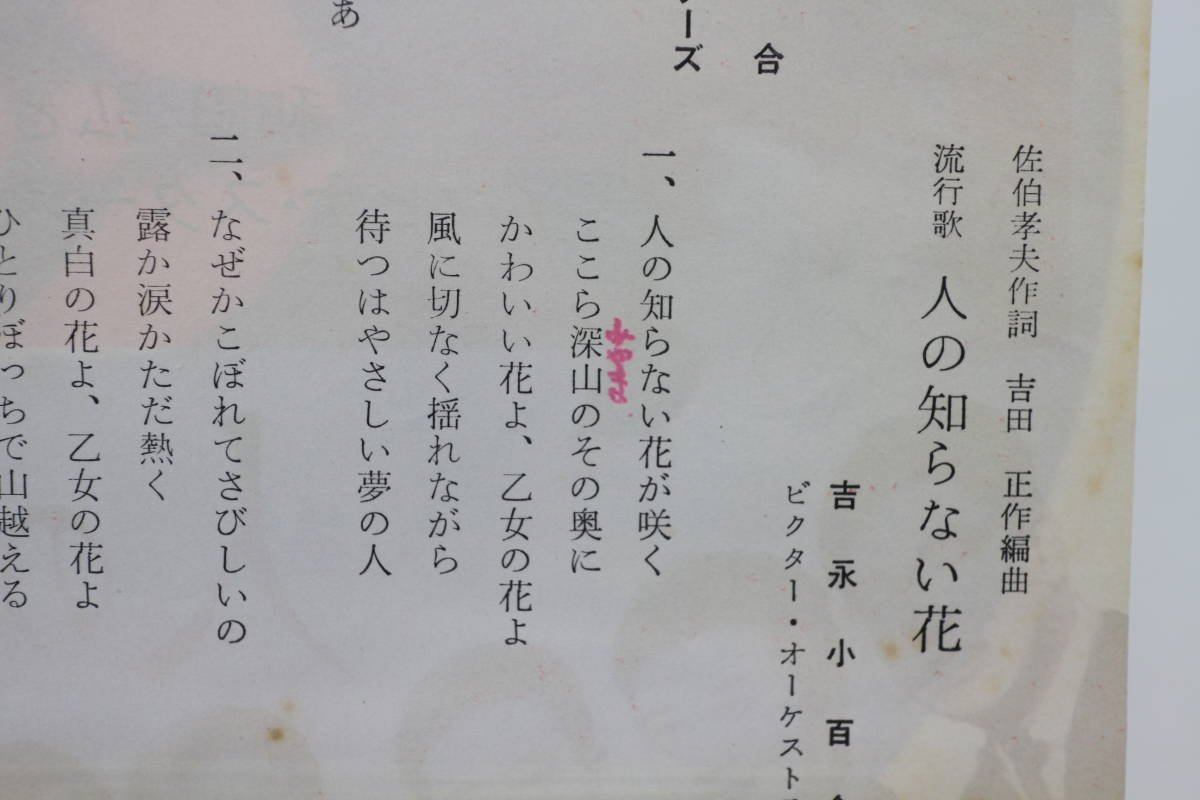 佐伯孝夫作詞 吉田 正作編曲
流行歌 人の知らない花
吉永小百合
ビクター・オーケスト
一、人の知らない花が咲く
ここら深山のその奥に
かわいい花よ、乙女の花よ
風に切なく揺れながら
待つはやさしい夢の人
二、なぜかこぼれてさびしいの
露か涙かただ熱く
真白の花よ、乙女の花よ
ひとりぼっちで山越える
合
ーズ
あ